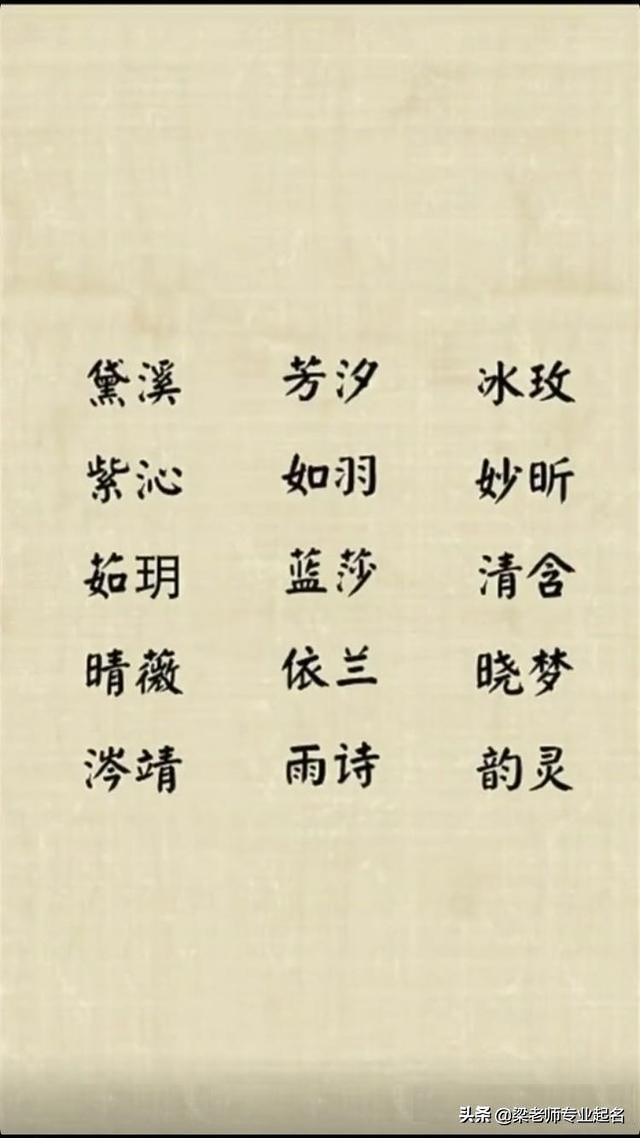 黛溪 芳汐 冰玫
紫沁 如羽 妙昕
茹玥 蓝莎 清含
晴薇 依兰 晓梦
涔靖 雨诗 韵灵
头条 @梁老师专业起名